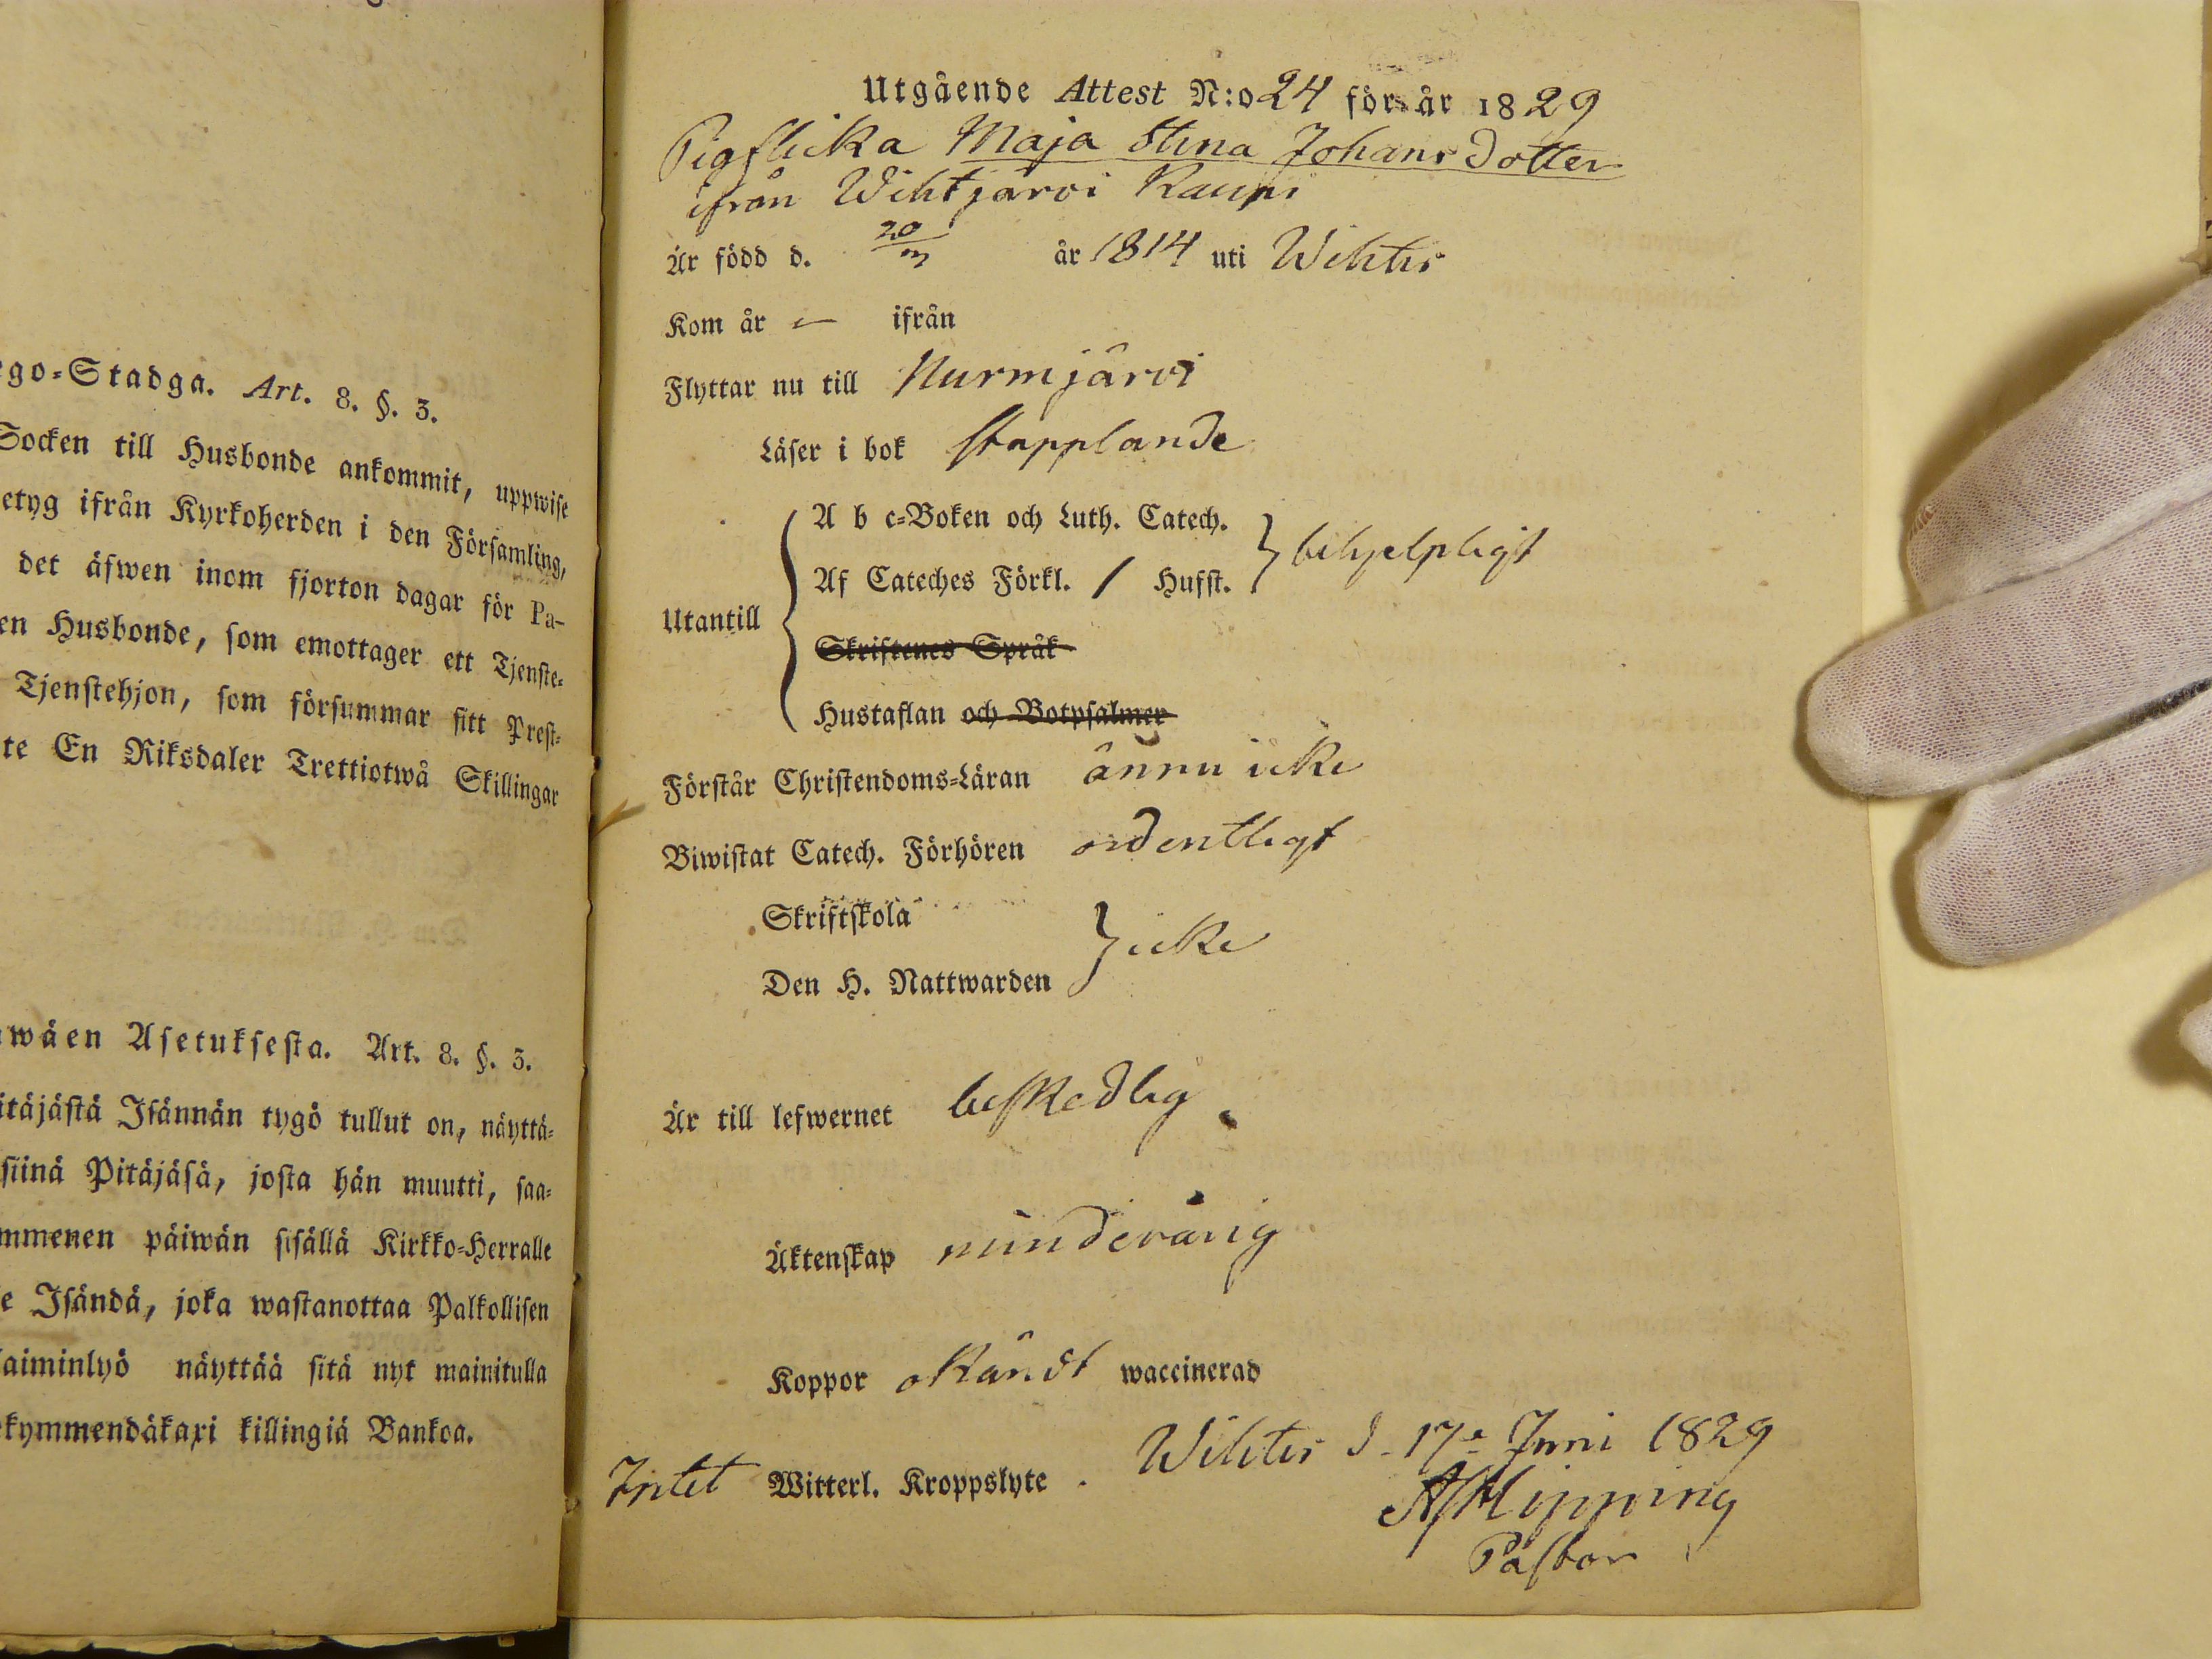 ego-Stadga. Art. 8. §. 3.
Socken till Husbonde ankommit, uppwise
etyg ifrån Kyrkoherden i den Församling,
det äfwen inom fjorton dagar för Pa-
en Husbonde, som emottager ett Tjenste-
Tjenstehjon, som försummar sitt Prest-
te En Riksdaler Trettiotwå Skillingar
wäen Asetuksesta. Art. 8. §. 3.
itäjästä Isännän tygö tullut on, näyttä-
siinä Pitäjäsä, josta hän muutti, saa-
mmenen päiwän sisällä Kirkko-Herralle
e Isändä, joka wastanottaa Palkollisen
aiminlyö näyttää sitä nyt mainitulla
kymmendäkaxi killingiä Bankoa.
Utgående Attest N:o 24 för år 1829
Pigflicka Maja Stina Johans Dotter
ifrån Wihtjärvi Kaupi
Är född d. 20/m år 1814 uti Wihtis
Kom år — ifrån
Flyttar nu till Nurmjärvi
Läser i bok stapplande
A b c-Boken och Luth. Catech.
Af Cateches Förkl. / Husst. } behjelpligt
Utantill
Skriftenes Språk
Hustaflan och Botpsalmer
Förstår Christendoms-Läran ännu icke
Biwistat Catech. Förhören ordentligt
Skriftskola
Den H. Nattwarden } icke
Är till lefwernet beskedlig
Äktenskap minderårig
Koppor okändt waccinerad
Intet Witterl. Kroppslyte. Wihtis d. 17e Juni 1829
AJHipping
Pastor